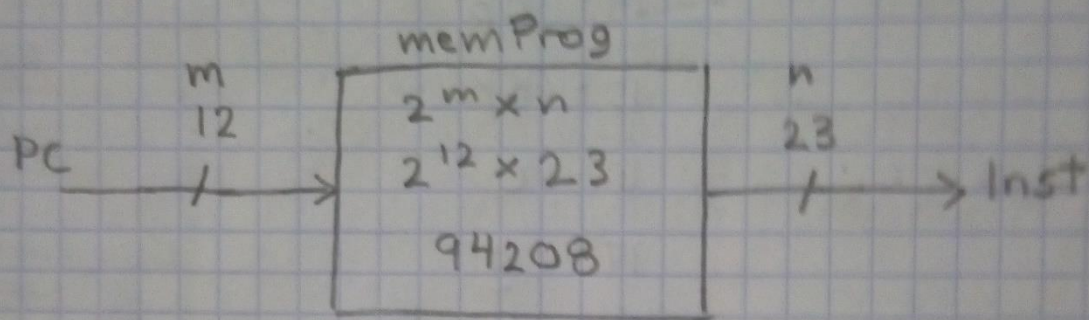 memProg
m
12
PC
2^m x n
2^12 x 23
94208
n
23
Inst